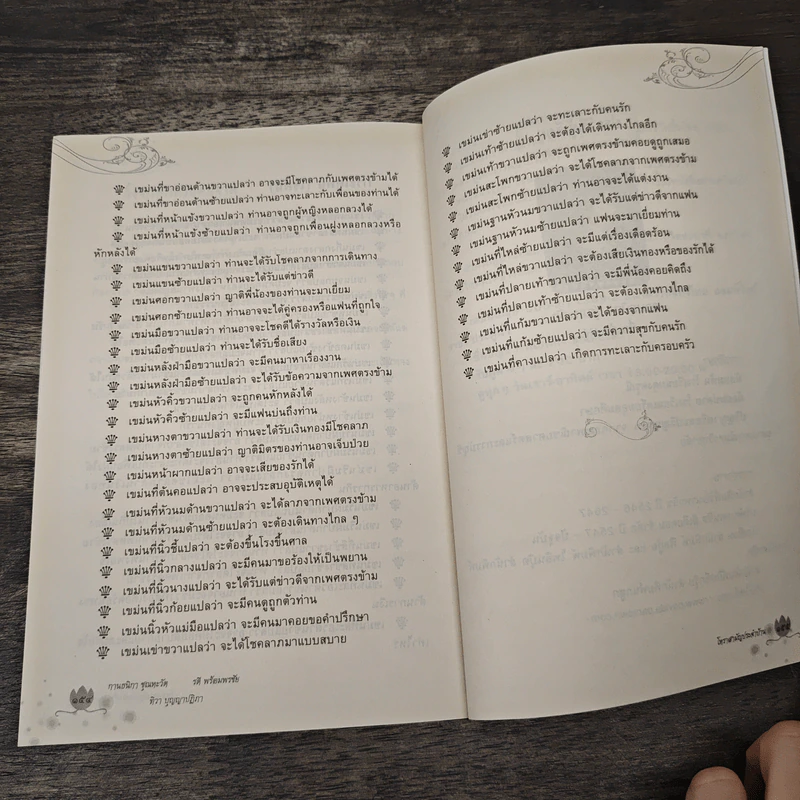 เขม่นที่ขาอ่อนด้านขวาแปลว่า อาจจะมีโชคลาภกับเพศตรงข้ามได้
เขม่นที่ขาอ่อนด้านซ้ายแปลว่า ท่านอาจทะเลาะกับเพื่อนของท่านได้
เขม่นที่หน้าแข้งขวาแปลว่า ท่านอาจถูกผู้หญิงหลอกลวงได้
เขม่นที่หน้าแข้งซ้ายแปลว่า ท่านอาจถูกเพื่อนฝูงหลอกลวงหรือ
หักหลังได้
เขม่นแขนขวาแปลว่า ท่านจะได้รับโชคลาภจากการเดินทาง
เขม่นแขนซ้ายแปลว่า ท่านจะได้รับแต่ข่าวดี
เขม่นศอกขวาแปลว่า ญาติพี่น้องของท่านจะมาเยี่ยม
เขม่นศอกซ้ายแปลว่า ท่านอาจจะได้คู่ครองหรือแฟนที่ถูกใจ
เขม่นมือขวาแปลว่า ท่านอาจจะโชคดีได้รางวัลหรือเงิน
เขม่นมือซ้ายแปลว่า ท่านจะได้รับชื่อเสียง
เขม่นหลังฝ่ามือขวาแปลว่า จะมีคนมาหาเรื่องงาน
เขม่นหลังฝ่ามือซ้ายแปลว่า จะได้รับข้อความจากเพศตรงข้าม
เขม่นหัวคิ้วขวาแปลว่า จะถูกคนหักหลังได้
เขม่นหัวคิ้วซ้ายแปลว่า จะมีแฟนบ่นถึงท่าน
เขม่นหางตาขวาแปลว่า ท่านจะได้รับเงินทองมีโชคลาภ
เขม่นหางตาซ้ายแปลว่า ญาติมิตรของท่านอาจเจ็บป่วย
เขม่นหน้าผากแปลว่า อาจจะเสียของรักได้
เขม่นที่ต้นคอแปลว่า อาจจะประสบอุบัติเหตุได้
เขม่นที่หัวนมด้านขวาแปลว่า จะได้ลาภจากเพศตรงข้าม
เขม่นที่หัวนมด้านซ้ายแปลว่า จะต้องเดินทางไกล ๆ
เขม่นที่นิ้วชี้แปลว่า จะต้องขึ้นโรงขึ้นศาล
เขม่นที่นิ้วกลางแปลว่า จะมีคนมาขอร้องให้เป็นพยาน
เขม่นที่นิ้วนางแปลว่า จะได้รับแต่ข่าวดีจากเพศตรงข้าม
เขม่นที่นิ้วก้อยแปลว่า จะมีคนดูถูกตัวท่าน
เขม่นนิ้วหัวแม่มือแปลว่า จะมีคนมาคอยขอคำปรึกษา
เขม่นเข่าขวาแปลว่า จะได้โชคลาภมาแบบสบาย
กานธนิกา ชุณหะวัต รติ พร้อมพรชัย
๑๕๔ ทิวา บุญญาปฏิภา
เขม่นเข่าซ้ายแปลว่า จะทะเลาะกับคนรัก
เขม่นเท้าซ้ายแปลว่า จะต้องได้เดินทางไกลอีก
เขม่นเท้าขวาแปลว่า จะถูกเพศตรงข้ามคอยดูถูกเสมอ
เขม่นสะโพกขวาแปลว่า จะได้โชคลาภจากเพศตรงข้าม
เขม่นสะโพกซ้ายแปลว่า ท่านอาจจะได้แต่งงาน
เขม่นฐานหัวนมขวาแปลว่า จะได้รับแต่ข่าวดีจากแฟน
เขม่นฐานหัวนมซ้ายแปลว่า แฟนจะมาเยี่ยมท่าน
เขม่นที่ไหล่ซ้ายแปลว่า จะมีแต่เรื่องเดือดร้อน
เขม่นที่ไหล่ขวาแปลว่า จะต้องเสียเงินทองหรือของรักได้
เขม่นที่ปลายเท้าขวาแปลว่า จะมีพี่น้องคอยคิดถึง
เขม่นที่ปลายเท้าซ้ายแปลว่า จะต้องเดินทางไกล
เขม่นที่แก้มขวาแปลว่า จะได้ของจากแฟน
เขม่นที่แก้มซ้ายแปลว่า จะมีความสุขกับคนรัก
เขม่นที่คางแปลว่า เกิดการทะเลาะกับครอบครัว
โหราศาสตร์ประจำบ้าน